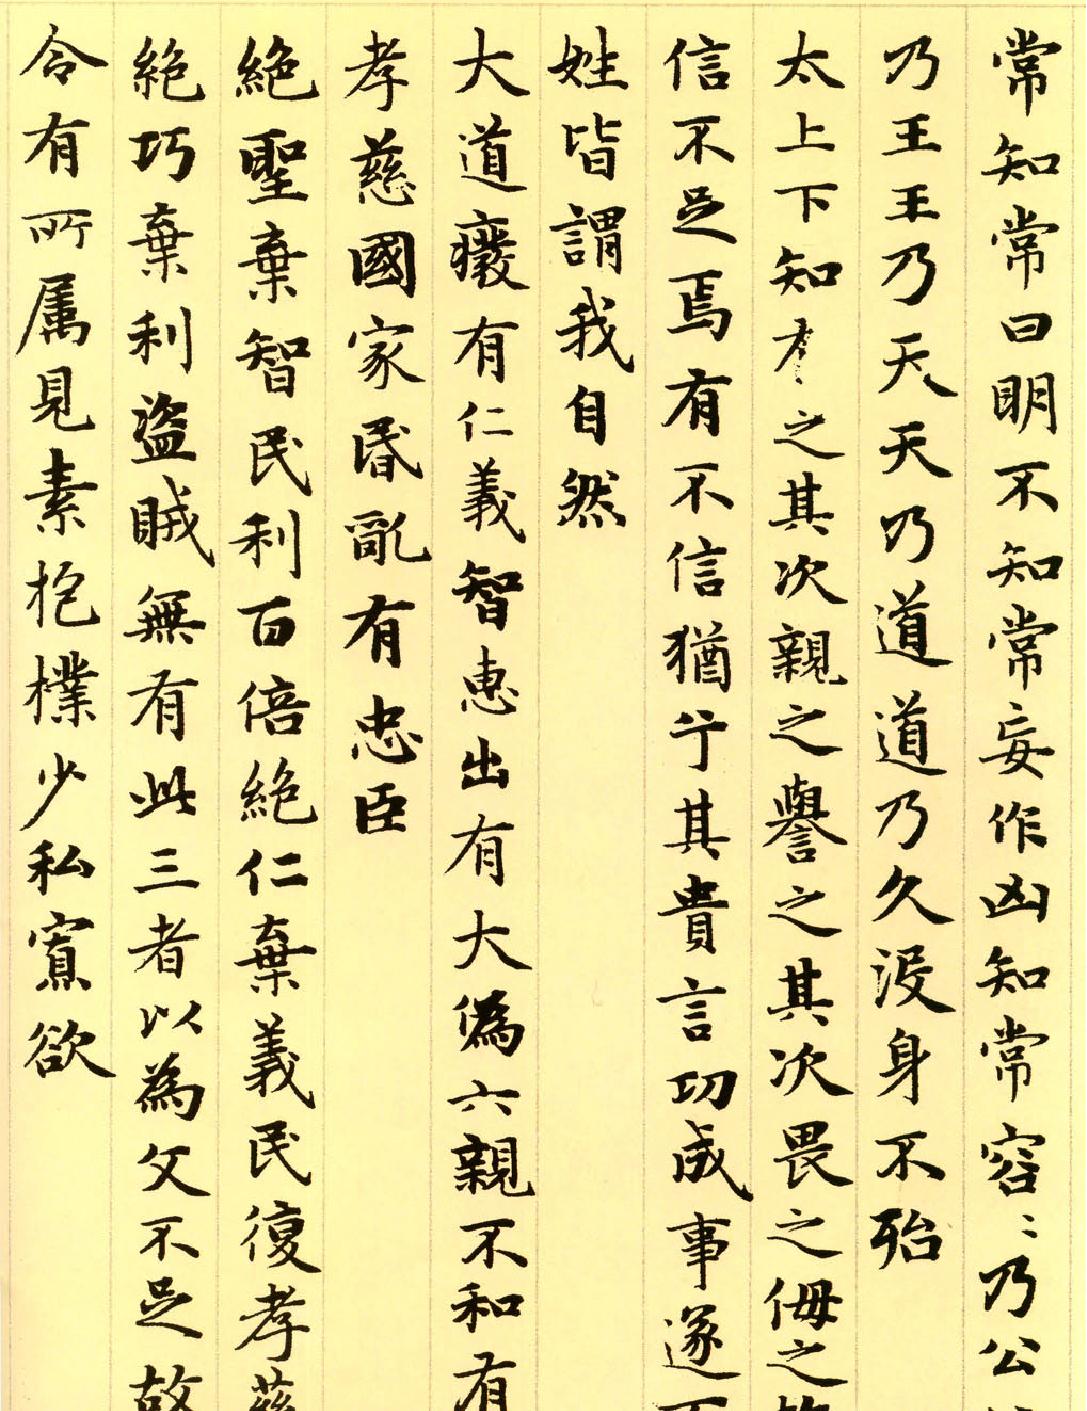 常知常曰明不知常妄作凶知常容〻乃公
乃王王乃天天乃道道乃久沒身不殆
太上下知有之其次親之譽之其次畏之侮之
信不足焉有不信猶兮其貴言功成事遂
姓皆謂我自然
大道癈有仁義智惠出有大偽六親不和有
孝慈國家昏亂有忠臣
絕聖棄智民利百倍絕仁棄義民復孝慈
絕巧棄利盜賊無有此三者以為文不足故
令有所属見素抱樸少私寡欲